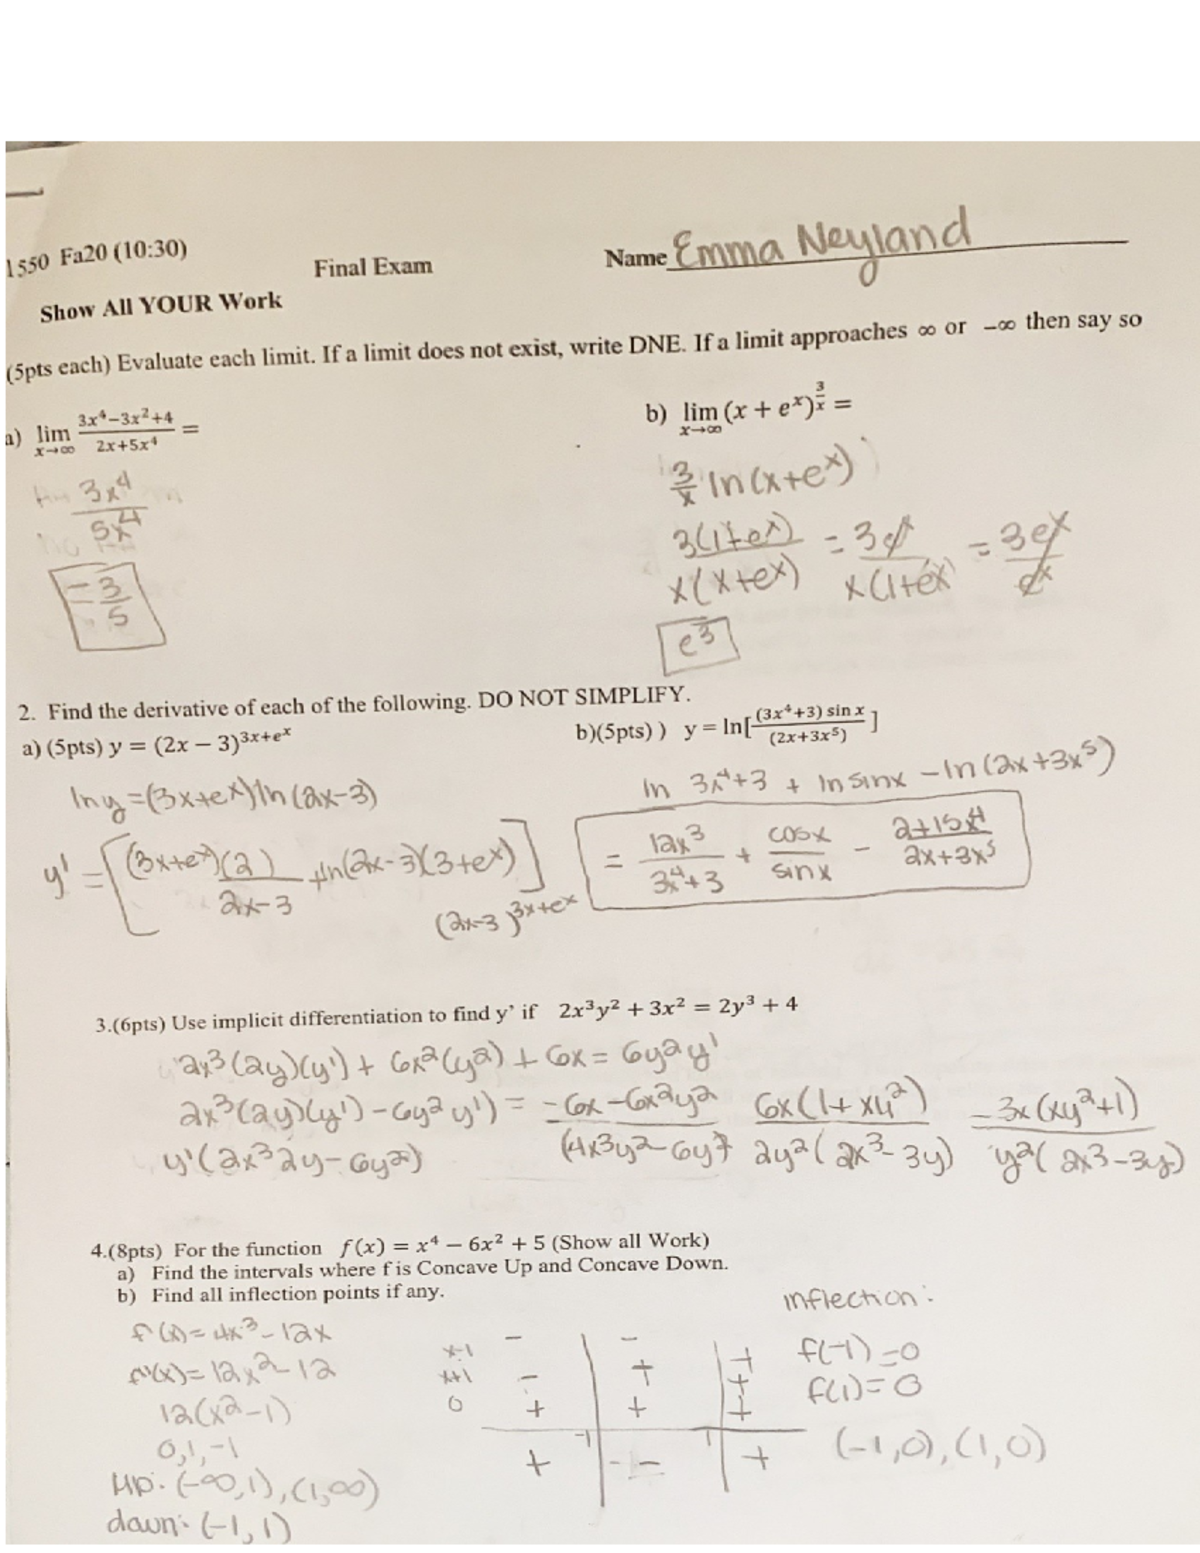 1550 Fa20 (10:30)
Final Exam
Name Emma Neyland
Show All YOUR Work
(5pts each) Evaluate each limit. If a limit does not exist, write DNE. If a limit approaches ∞ or −∞ then say so
a) lim x→∞ (3x⁴−3x²+4)/(2x+5x⁴) =
b) lim x→∞ (x + eˣ)^(3/x) =
3x⁴/5x⁴
= 3/5
3/x ln(x+eˣ)
3(1+eˣ)/x(x+eˣ) = 3eˣ/x(1+eˣ) = 3eˣ/eˣ
e³
2. Find the derivative of each of the following. DO NOT SIMPLIFY.
a) (5pts) y = (2x − 3)^(3x+eˣ)
b)(5pts) ) y = ln[(3x⁴+3) sin x/(2x+3x⁵)]
ln y = (3x+eˣ)ln(2x-3)
y' = [(3x+eˣ)(2)/2x-3 + ln(2x-3)(3+eˣ)] (2x-3)^(3x+eˣ)
ln 3x⁴+3 + ln sinx − ln(2x+3x⁵)
= 12x³/3x⁴+3 + cosx/sinx − 2+15x⁴/2x+3x⁵
3.(6pts) Use implicit differentiation to find y' if 2x³y² + 3x² = 2y³ + 4
2x³(2y)(y') + 6x²(y²) + 6x = 6y²y'
2x³(2y)(y') − 6y²y') = −6x−6x²y²/(4x³y²−6y² 6x(1+xy²)/2y²(2x³−3y) −3x(xy²+1)/y²(2x³−3y)
y'(2x³2y−6y²)
4.(8pts) For the function f(x) = x⁴ − 6x² + 5 (Show all Work)
a) Find the intervals where f is Concave Up and Concave Down.
b) Find all inflection points if any.
f'(x) = 4x³ − 12x
f''(x) = 12x² − 12
12(x²−1)
0,1,−1
up: (−∞,1), (1,∞)
down: (−1,1)
x-1 − − +
x+1 − + +
0 + + +
−1 1
+ − +
inflection:
f(−1)=0
f(1)=0
(−1,0),(1,0)